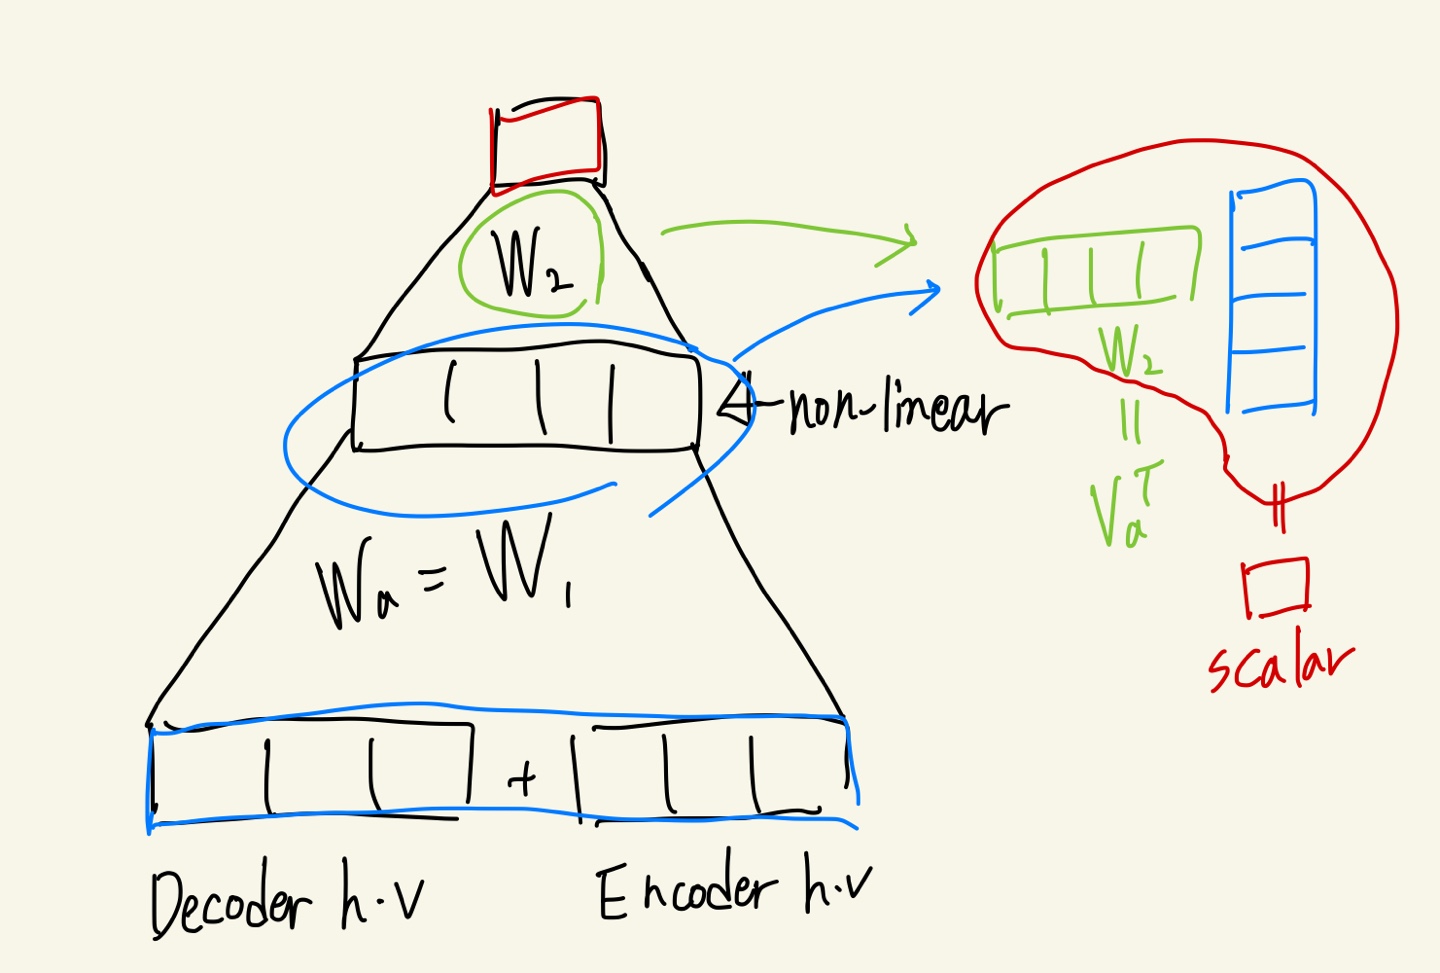 W₂
non-linear
Wₐ = W₁
+
Decoder h.v
Encoder h.v
W₂
||
Vₐᵀ
||
scalar